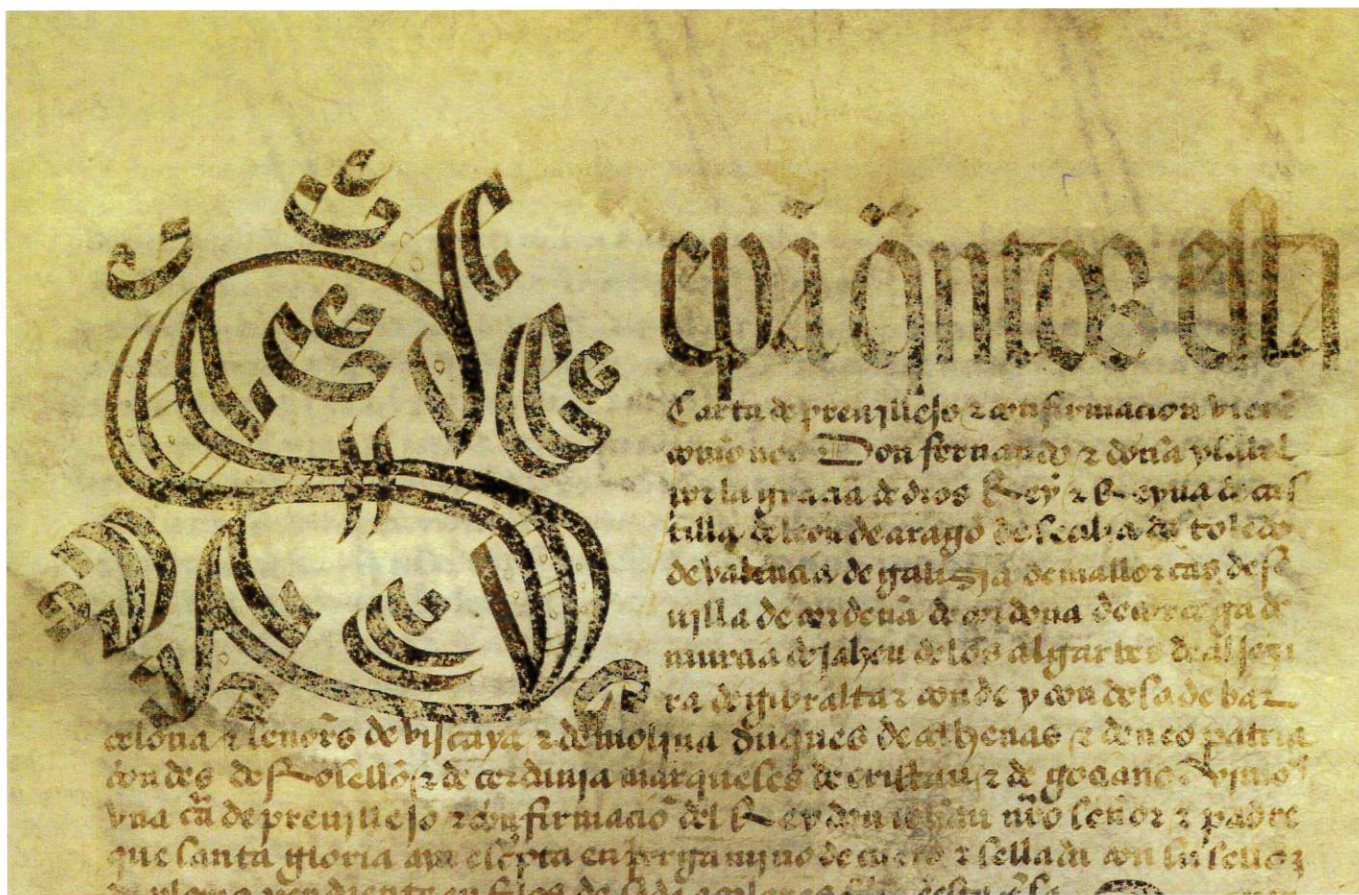 Sepã q̃ntos esta
Carta de preujllejo z confirmacion vierẽ
como nos Don fernando z doña ysabel
por la gracia de dios Rey z Reyna de cas
tilla de leon de aragõ de seçilia de toledo
de valencia de galizia de mallorcas de se
uilla de cerdeña de cordoua de corcega de
murcia de jahen de los algarbes de algezi
ra de gibraltar conde y condesa de bar
celona z señores de viscaya z de molina duques de athenas z de neo patria
condes de Rosellõ z de cerdania marqueses de oristan z de gociano vimos
vna cã de preujllejo z cõfirmaciõ del Rey don iohan nr̃o señor z padre
que santa gloria aya escpta en pergamino de cuero z sellada con su sello
de plomo pendiente en filos de seda a colores